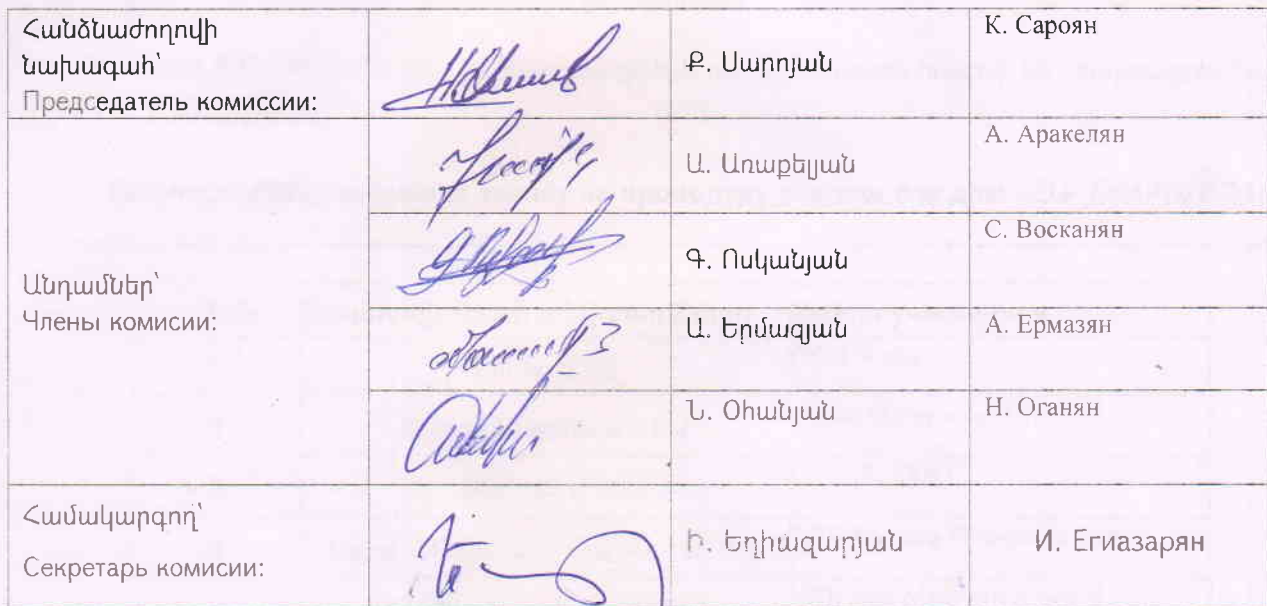 Հանձնաժողովի
նախագահ՝
Председатель комиссии:
Ք. Սարոյան
К. Сароян
Ա. Առաքելյան
А. Аракелян
Անդամներ՝
Члены комисии:
Գ. Ոսկանյան
С. Восканян
Ա. Երմազյան
А. Ермазян
Ն. Օհանյան
Н. Оганян
Համակարգող՝
Секретарь комисии:
Ի. Եղիազարյան
И. Егиазарян